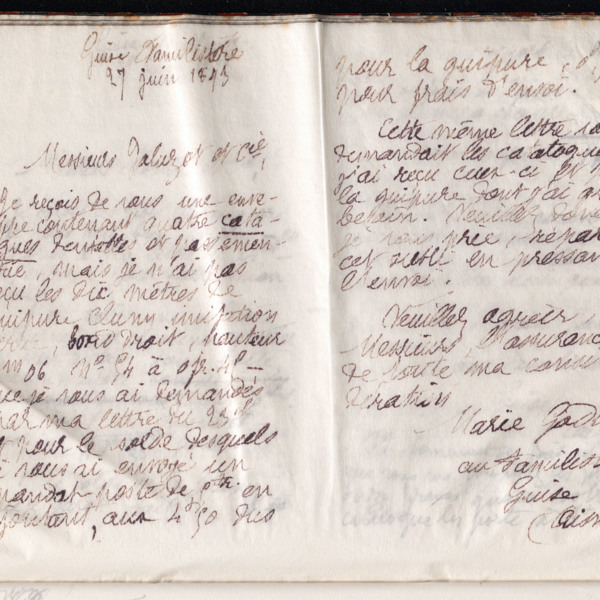 Guise Familistère
27 juin 1893
Messieurs Daluzot et Cie,
je reçois de vous une enve-
ppe contenant quatre cata-
gues dentelles et passemen-
terie, mais je n'ai pas
eçu les dix mètres de
uipure Cluny imitation
bord droit, hauteur
m 06 No 54 à 0fr.45
que je vous ai demandés
par ma lettre du 23 ct
t pour le solde desquels
e vous ai envoyé un
mandat-poste de en
joutant, aux 4f50 dus
pour la guipure,
pour frais d'envoi.
Cette même lettre
demandait les catalogue
j'ai reçu ceux-ci et
la guipure dont j'ai
besoin. Veuillez donc
je vous prie, répar
cet oubli en pressan
l'envoi.
Veuillez agréer
Messieurs, l'assuranc
de toute ma consi
dération
Marie
au Familist
Guise
(Aisn